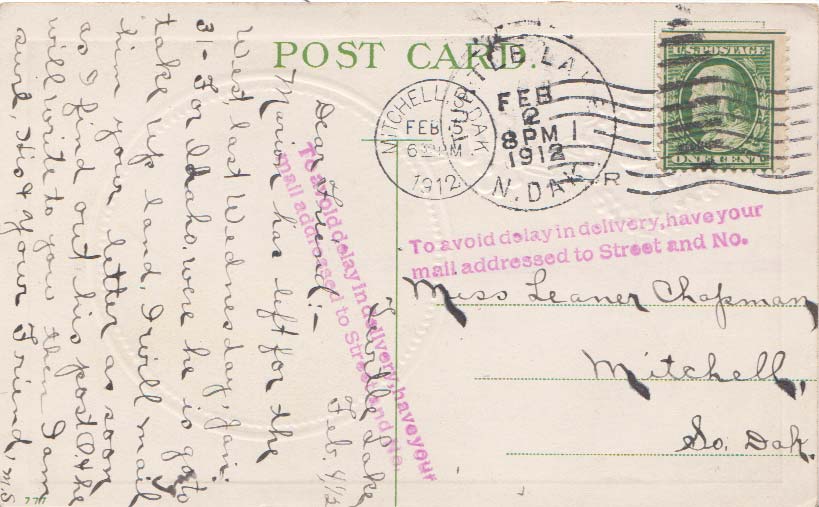 POST CARD.
U.S. POSTAGE
ONE CENT
TURTLE LAKE
FEB
2
8 PM
1912
N. DAK.
MITCHELL, S. DAK.
FEB 5
6 AM
1912
R
To avoid delay in delivery, have your
mail addressed to Street and No.
To avoid delay in delivery, have your
mail addressed to Street and No.
Miss Leaner Chapman
Mitchell,
So. Dak.
Turtle Lake,
Feb. 4/12
Dear Friend:-
Marion has left for the
West last Wednesday, Jan.
31 - For Idaho, were he is go to
take up land. I will mail
him your letter as soon
as I find out his post O. the
will write to you then I am
sure, Hist your Friend, M.S
777